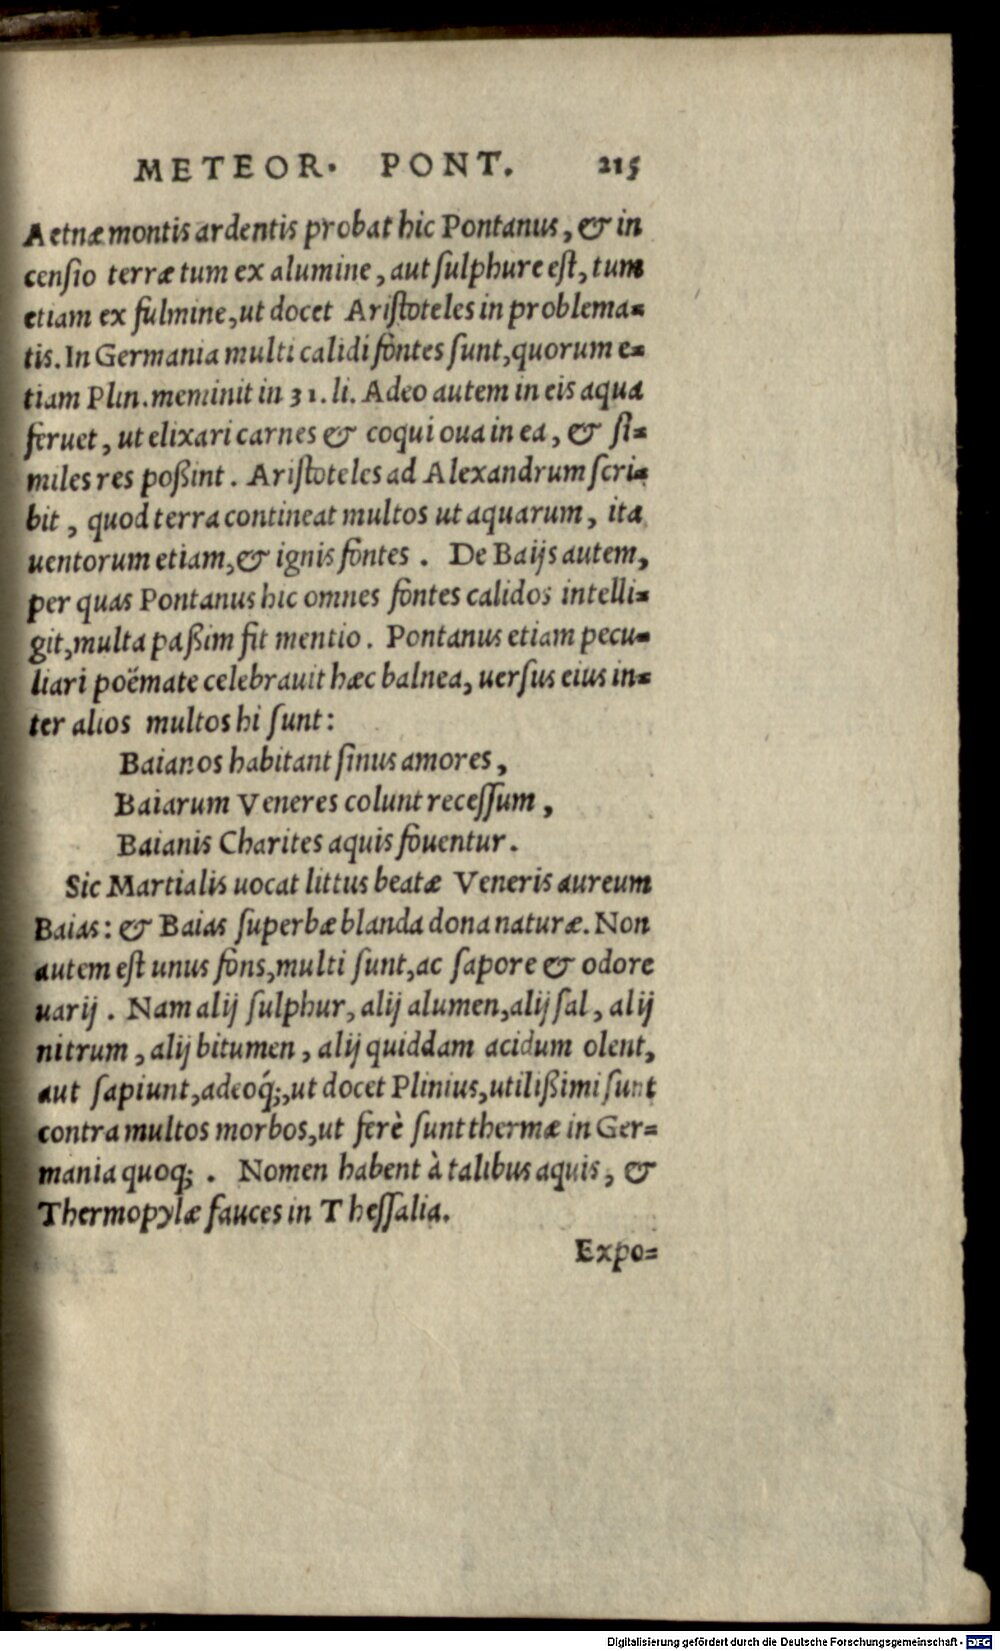 METEOR. PONT. 215
Aetnæ montis ardentis probat hic Pontanus, & in
censio terræ tum ex alumine, aut sulphure est, tum
etiam ex fulmine, ut docet Aristoteles in problema=
tis. In Germania multi calidi fontes sunt, quorum e=
tiam Plin. meminit in 31. li. Adeo autem in eis aqua
feruet, ut elixari carnes & coqui oua in ea, & si=
miles res poßint. Aristoteles ad Alexandrum scri=
bit, quod terra contineat multos ut aquarum, ita
uentorum etiam, & ignis fontes. De Baijs autem,
per quas Pontanus hic omnes fontes calidos intelli=
git, multa paßim fit mentio. Pontanus etiam pecu=
liari poëmate celebrauit hæc balnea, uersus eius in=
ter alios multos hi sunt:
Baianos habitant sinus amores,
Baiarum Veneres colunt recessum,
Baianis Charites aquis fouentur.
Sic Martialis uocat littus beatæ Veneris aureum
Baias: & Baias superbæ blanda dona naturæ. Non
autem est unus fons, multi sunt, ac sapore & odore
uarij. Nam alij sulphur, alij alumen, alij sal, alij
nitrum, alij bitumen, alij quiddam acidum olent,
aut sapiunt, adeoq́;, ut docet Plinius, utilißimi sunt
contra multos morbos, ut ferè sunt thermæ in Ger=
mania quoq;. Nomen habent à talibus aquis, &
Thermopylæ fauces in Thessalia.
Expo=
Digitalisierung gefördert durch die Deutsche Forschungsgemeinschaft - DFG